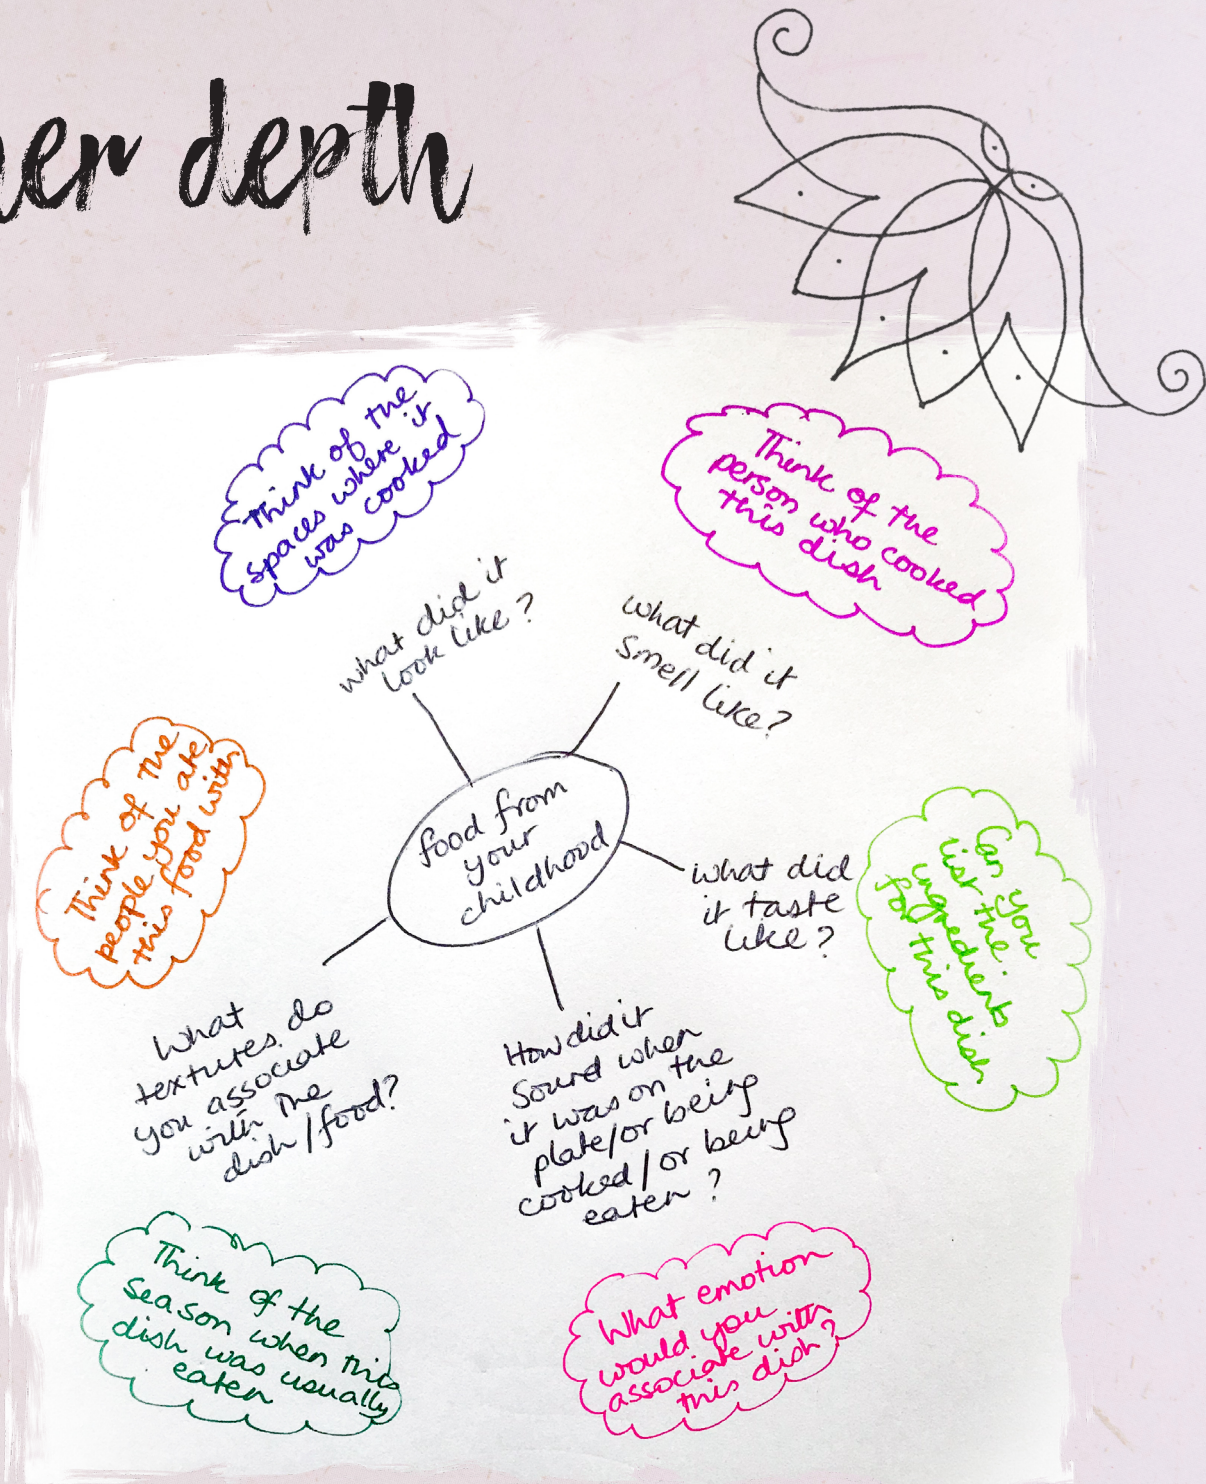 her depth
Think of the
spaces where it
was cooked
Think of the
person who cooked
this dish
what did it
look like?
what did it
smell like?
Think of the
people you ate
this food with
food from
your
childhood
what did
it taste
like?
Can you
list the
ingredients
for this dish
What
textures do
you associate
with the
dish/food?
How did it
sound when
it was on the
plate/or being
cooked/or being
eaten?
Think of the
season when this
dish was usually
eaten
What emotion
would you
associate with
this dish?